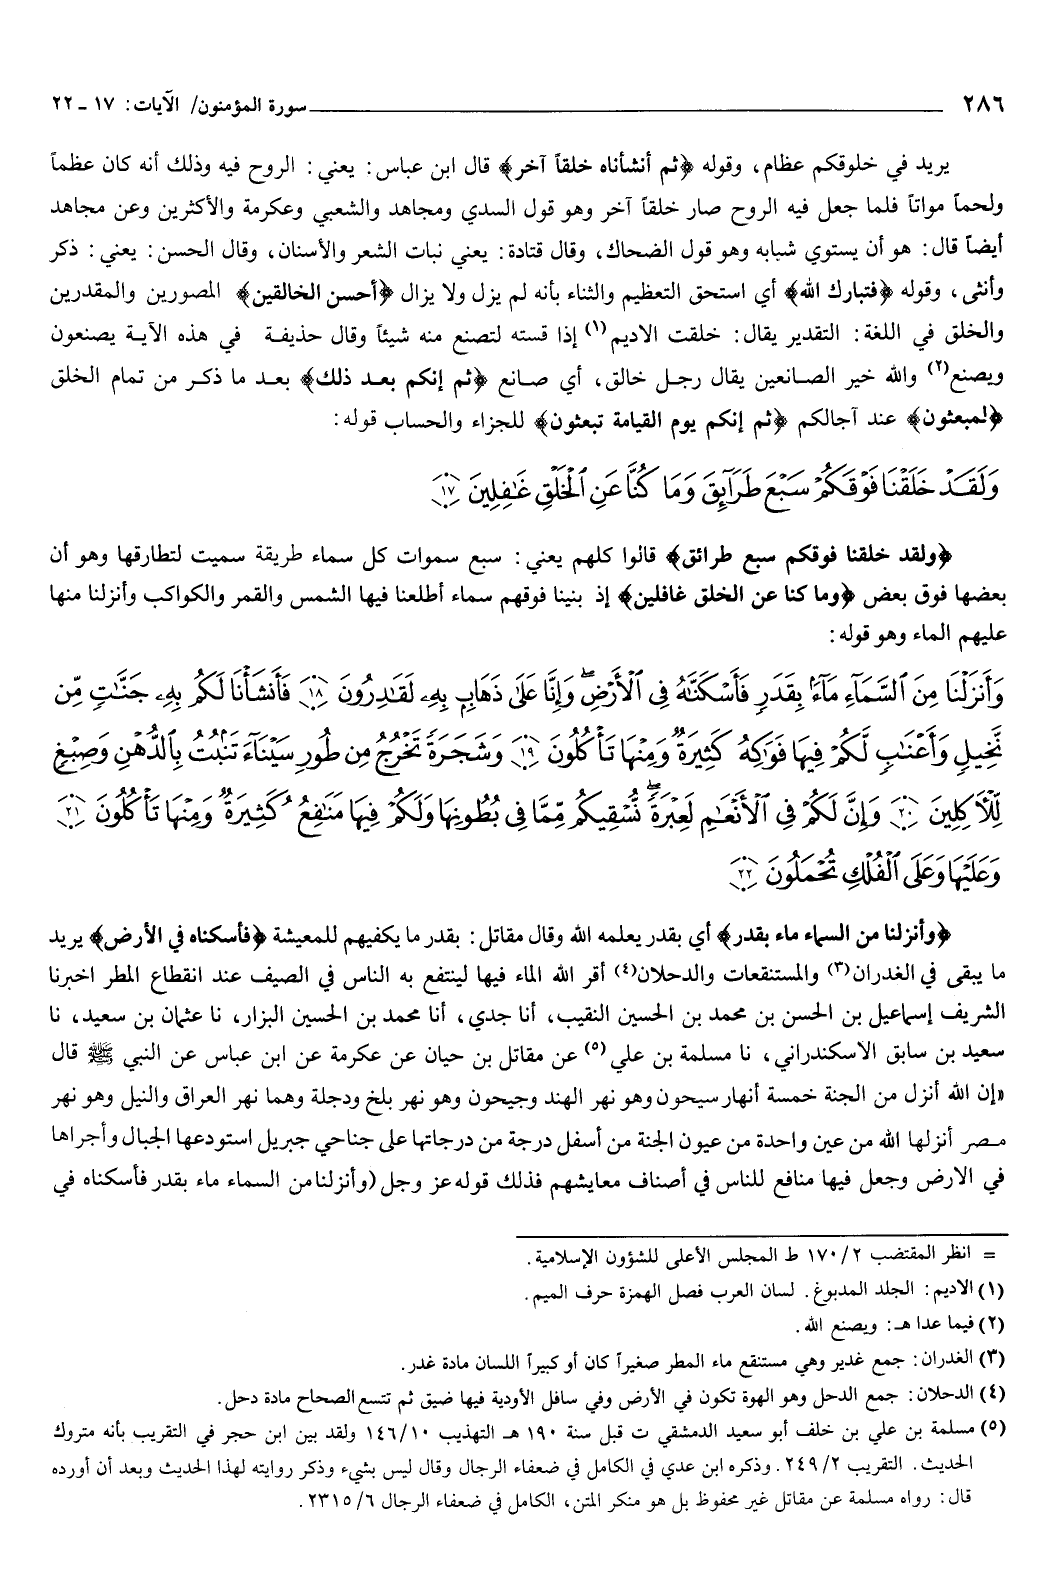 ٢٨٦ سورة المؤمنون/ الآيات: ١٧ ـ ٢٢
يريد في خلوقكم عظام، وقوله ﴿ثم أنشأناه خلقاً آخر﴾ قال ابن عباس: يعني: الروح فيه وذلك أنه كان عظماً
ولحماً مواتاً فلما جعل فيه الروح صار خلقاً آخر وهو قول السدي ومجاهد والشعبي وعكرمة والأكثرين وعن مجاهد
أيضاً قال: هو أن يستوي شبابه وهو قول الضحاك، وقال قتادة: يعني نبات الشعر والأسنان، وقال الحسن: يعني: ذكر
وأنثى، وقوله ﴿فتبارك الله﴾ أي استحق التعظيم والثناء بأنه لم يزل ولا يزال ﴿أحسن الخالقين﴾ المصورين والمقدرين
والخلق في اللغة: التقدير يقال: خلقت الاديم(١) إذا قسته لتصنع منه شيئاً وقال حذيفة في هذه الآية يصنعون
ويصنع(٢) والله خير الصانعين يقال رجل خالق، أي صانع ﴿ثم إنكم بعد ذلك﴾ بعد ما ذكر من تمام الخلق
﴿لمبعثون﴾ عند آجالكم ﴿ثم إنكم يوم القيامة تبعثون﴾ للجزاء والحساب قوله:
وَلَقَدْ خَلَقْنَا فَوْقَكُمْ سَبْعَ طَرَآئِقَ وَمَا كُنَّا عَنِ ٱلْخَلْقِ غَٰفِلِينَ ١٧
﴿ولقد خلقنا فوقكم سبع طرائق﴾ قالوا كلهم يعني: سبع سموات كل سماء طريقة سميت لتطارقها وهو أن
بعضها فوق بعض ﴿وما كنا عن الخلق غافلين﴾ إذ بنينا فوقهم سماء أطلعنا فيها الشمس والقمر والكواكب وأنزلنا منها
عليهم الماء وهو قوله:
وَأَنزَلْنَا مِنَ ٱلسَّمَآءِ مَآءًۢ بِقَدَرٍ فَأَسْكَنَّٰهُ فِى ٱلْأَرْضِۖ وَإِنَّا عَلَىٰ ذَهَابٍۭ بِهِۦ لَقَٰدِرُونَ ١٨ فَأَنشَأْنَا لَكُم بِهِۦ جَنَّٰتٍ مِّن
نَّخِيلٍ وَأَعْنَٰبٍ لَّكُمْ فِيهَا فَوَٰكِهُ كَثِيرَةٌ وَمِنْهَا تَأْكُلُونَ ١٩ وَشَجَرَةً تَخْرُجُ مِن طُورِ سَيْنَآءَ تَنۢبُتُ بِٱلدُّهْنِ وَصِبْغٍ
لِّلْـَٔاكِلِينَ ٢٠ وَإِنَّ لَكُمْ فِى ٱلْأَنْعَٰمِ لَعِبْرَةًۖ نُّسْقِيكُم مِّمَّا فِى بُطُونِهَا وَلَكُمْ فِيهَا مَنَٰفِعُ كَثِيرَةٌ وَمِنْهَا تَأْكُلُونَ ٢١
وَعَلَيْهَا وَعَلَى ٱلْفُلْكِ تُحْمَلُونَ ٢٢
﴿وأنزلنا من السماء ماء بقدر﴾ أي بقدر يعلمه الله وقال مقاتل: بقدر ما يكفيهم للمعيشة ﴿فأسكناه في الأرض﴾ يريد
ما يبقى في الغدران(٣) والمستنقعات والدحلان(٤) أقر الله الماء فيها لينتفع به الناس في الصيف عند انقطاع المطر اخبرنا
الشريف إسماعيل بن الحسن بن محمد بن الحسين النقيب، أنا جدي، أنا محمد بن الحسين البزار، نا عثمان بن سعيد، نا
سعيد بن سابق الاسكندراني، نا مسلمة بن علي(٥) عن مقاتل بن حيان عن عكرمة عن ابن عباس عن النبي ﷺ قال
«إن الله أنزل من الجنة خمسة أنهار سيحون وهو نهر الهند وجيحون وهو نهر بلخ ودجلة وهما نهر العراق والنيل وهو نهر
مصر أنزلها الله من عين واحدة من عيون الجنة من أسفل درجة من درجاتها على جناحي جبريل استودعها الجبال وأجراها
في الارض وجعل فيها منافع للناس في أصناف معايشهم فذلك قوله عز وجل (وأنزلنا من السماء ماء بقدر فأسكناه في
= انظر المقتضب ٢/ ١٧٠ ط المجلس الأعلى للشؤون الإسلامية.
(١) الاديم: الجلد المدبوغ. لسان العرب فصل الهمزة حرف الميم.
(٢) فيما عدا هـ: ويصنع الله.
(٣) الغدران: جمع غدير وهي مستنقع ماء المطر صغيراً كان أو كبيراً اللسان مادة غدر.
(٤) الدحلان: جمع الدحل وهو الهوة تكون في الأرض وفي سافل الأودية فيها ضيق ثم تتسع الصحاح مادة دحل.
(٥) مسلمة بن علي بن خلف أبو سعيد الدمشقي ت قبل سنة ١٩٠ هـ التهذيب ١٠/ ١٤٦ ولقد بين ابن حجر في التقريب بأنه متروك
الحديث. التقريب ٢/ ٢٤٩. وذكره ابن عدي في الكامل في ضعفاء الرجال وقال ليس بشيء وذكر روايته لهذا الحديث وبعد أن أورده
قال: رواه مسلمة عن مقاتل غير محفوظ بل هو منكر المتن، الكامل في ضعفاء الرجال ٦/ ٢٣١٥.